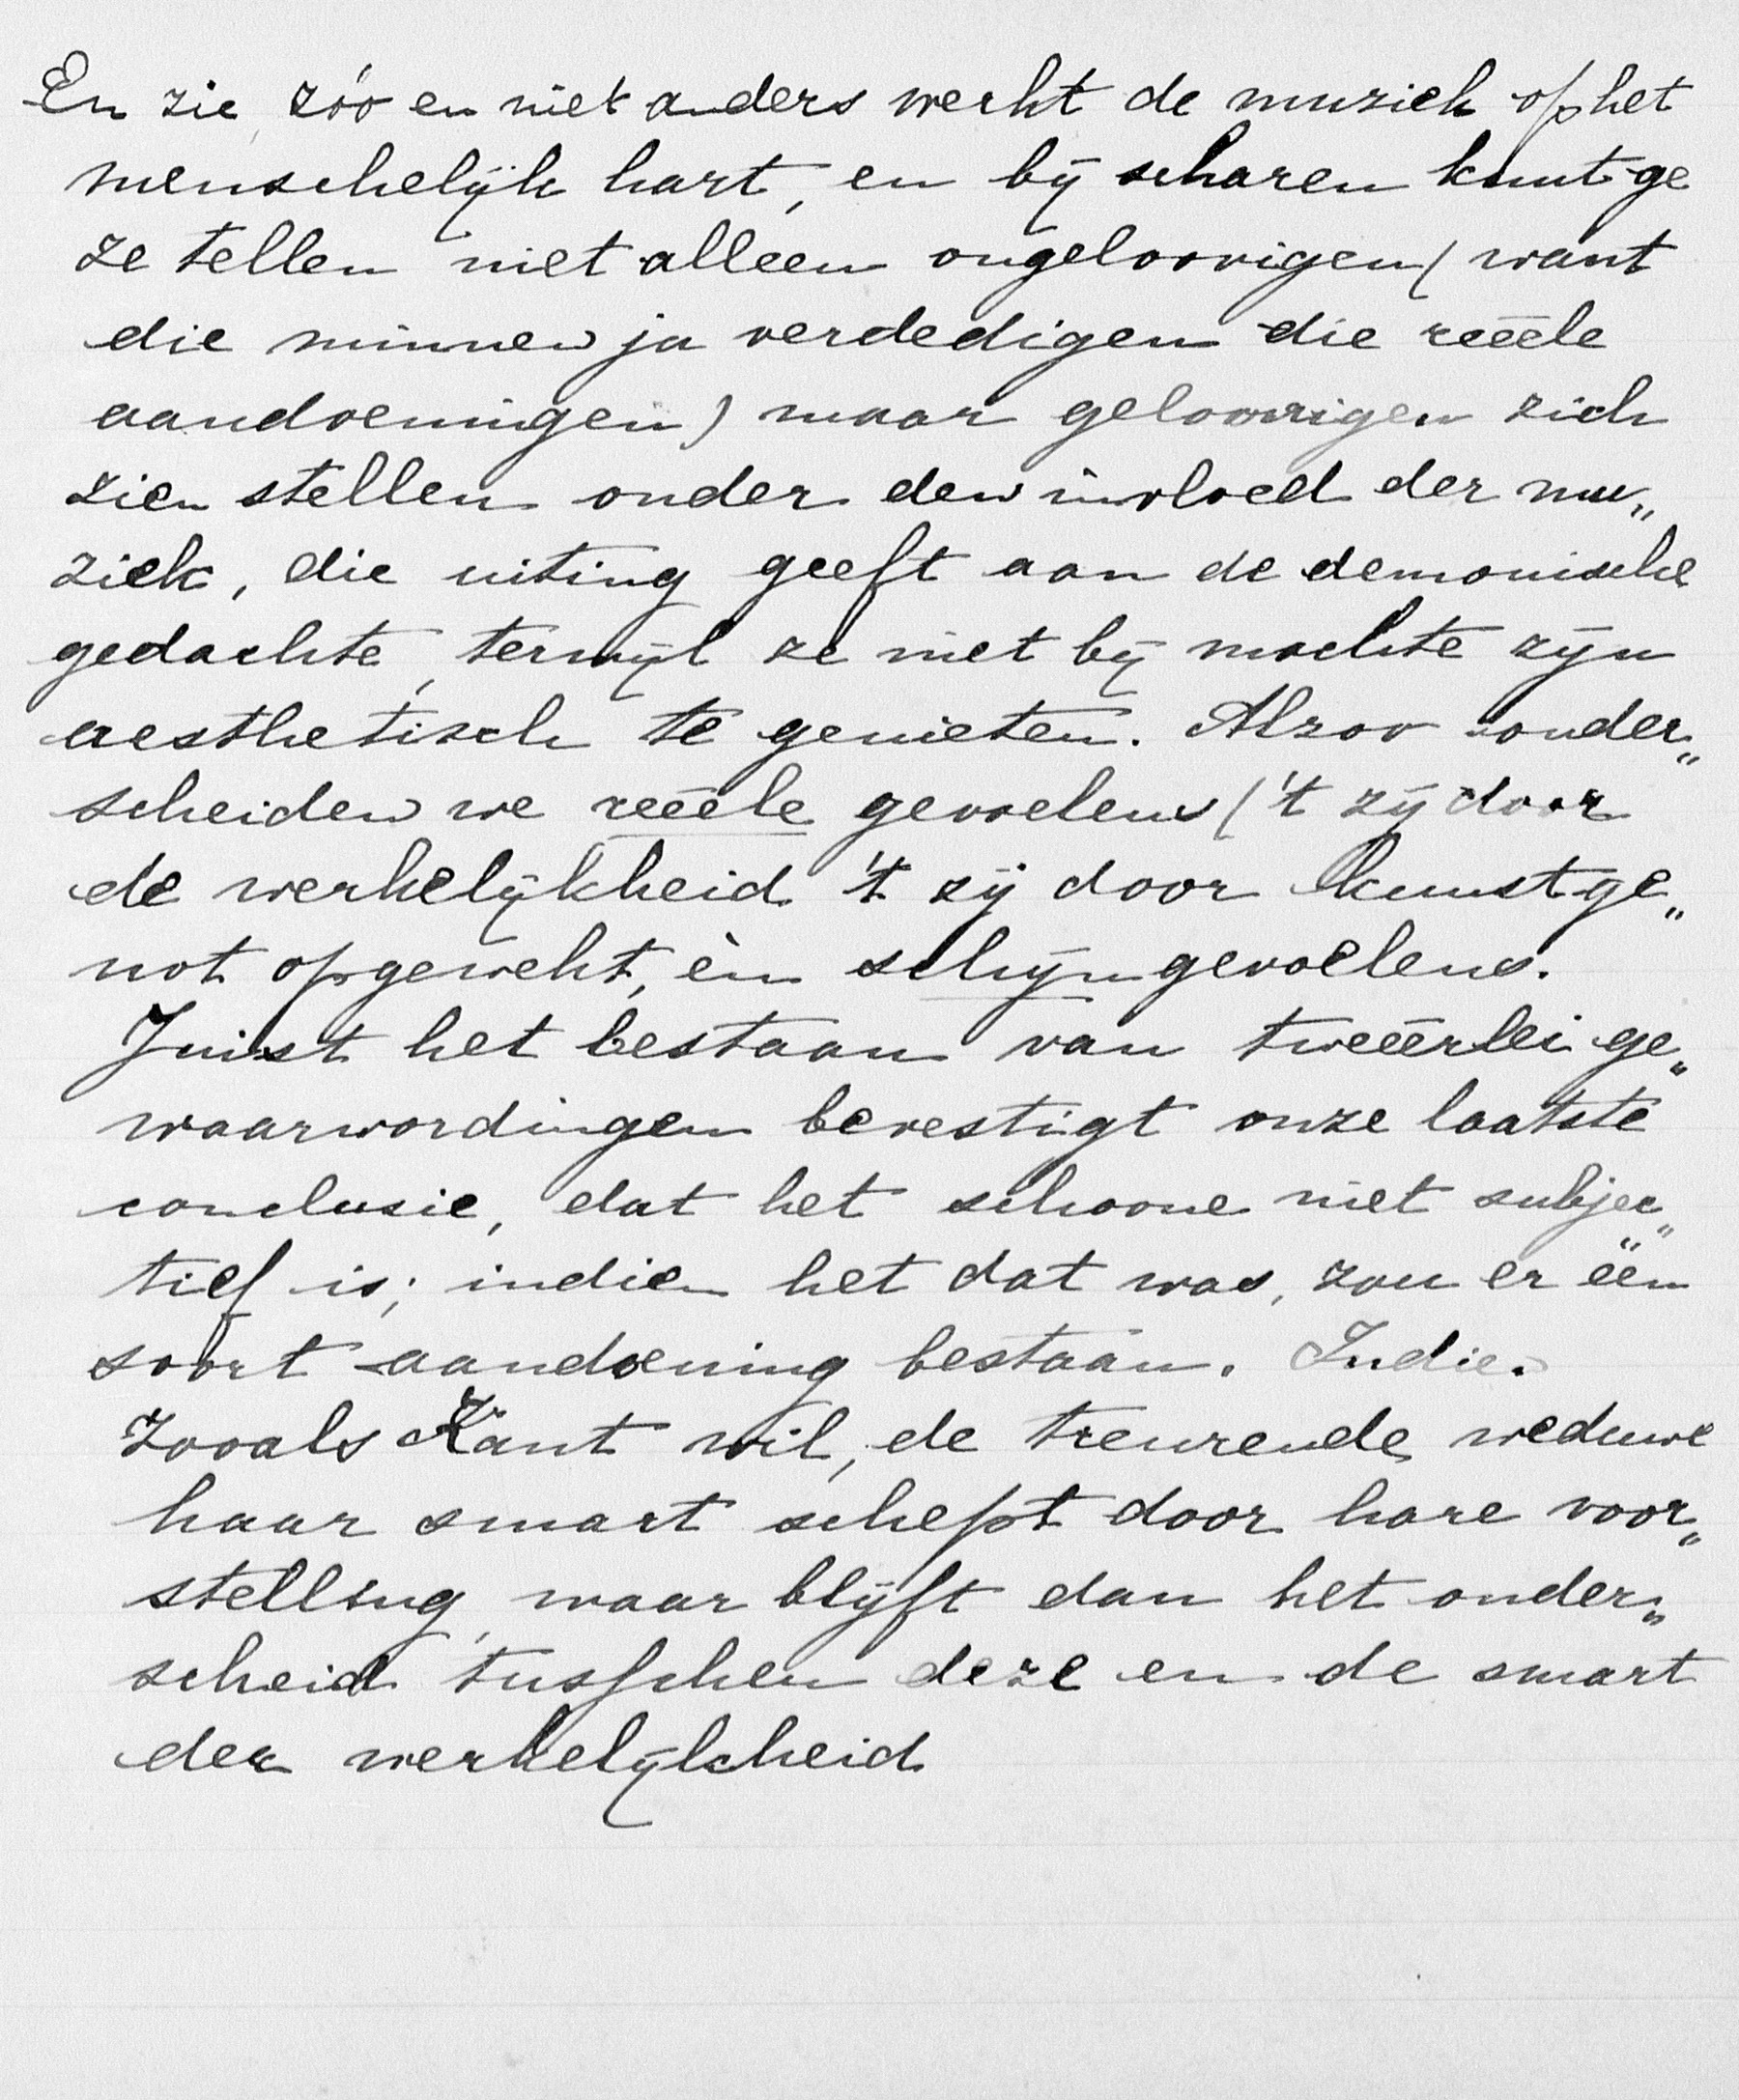 En zie, zóo en niet anders werkt de muziek op het
menschelijk hart, en bij scharen kunt ge
ze tellen niet alleen ongeloovigen (want
die minnen ja verdedigen die reëele
aandoeningen) maar geloovigen zich
zien stellen onder den invloed der mu„
ziek, die uiting geeft aan de demonische
gedachte, terwijl ze niet bij machte zijn
aesthetisch te genieten. Alzoo onder„
scheiden we reëele gevoelens ('t zij door
de werkelijkheid 't zij door kunstge„
not opgewekt, èn schijngevoelens.
Juist het bestaan van tweeërlei ge„
waarwordingen bevestigt onze laatste
conclusie, dat het schoone niet subjec„
tief is; indien het dat was, zou er één
soort aandoening bestaan. Indien
zooals Kant wil, de treurende weduwe
haar smart schept door hare voor„
stelling, waar blijft dan het onder„
scheid tusschen deze en de smart
der werkelijkheid